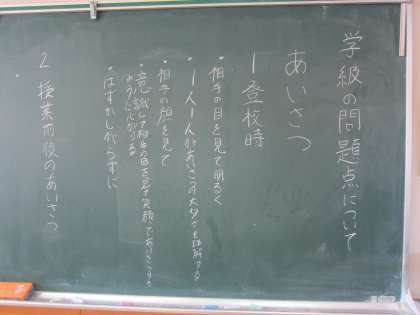 学級の問題点について
あいさつ
1 登校時
・相手の目を見て明るく
・1人1人があいさつの大切さを理解する
・相手の顔を見て
・意識して相手の目を見て笑顔であいさつする
ようにこころがける
・はずかしがらずに
2 授業前後のあいさつ